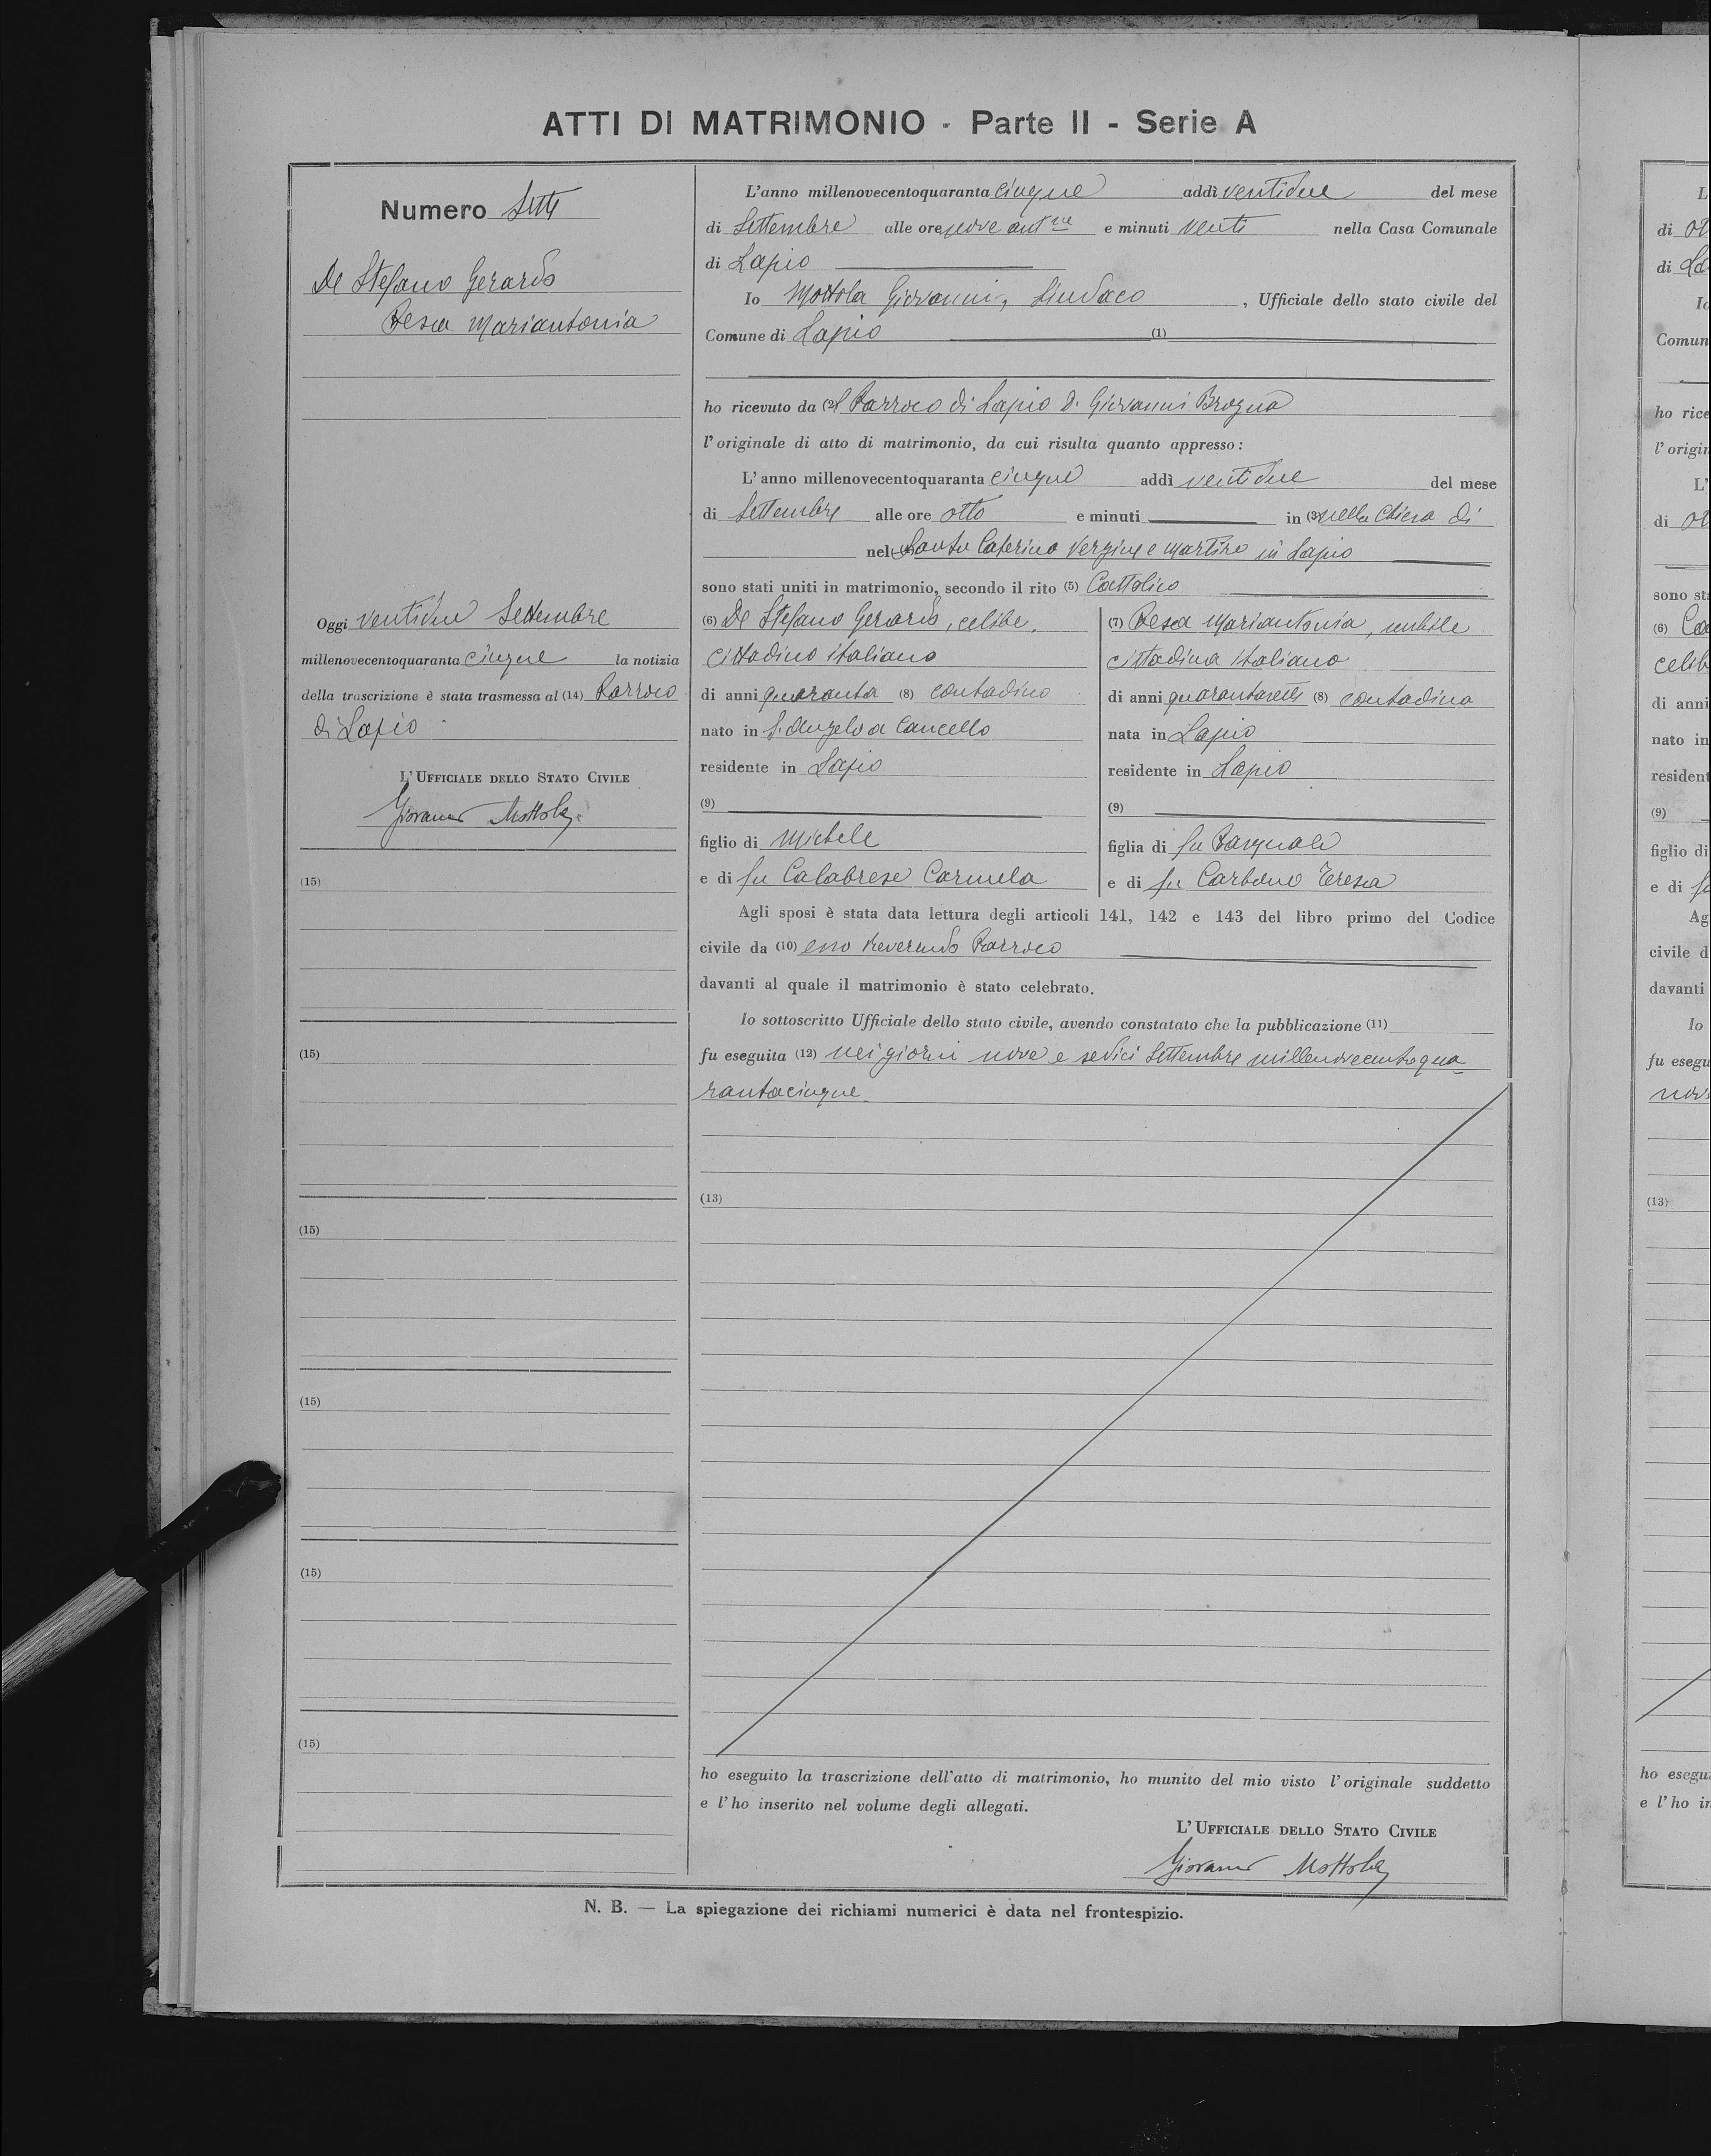 ATTI DI MATRIMONIO - Parte II - Serie A
Numero Sette
De Stefano Gerardo
Pesca Mariantonia
Oggi ventidue Settembre
millenovecentoquaranta cinque la notizia
della trascrizione è stata trasmessa al (14) Parroco
di Lapio
L'UFFICIALE DELLO STATO CIVILE
Giovanni Mottola
(15)
(15)
(15)
(15)
(15)
(15)
L'anno millenovecentoquaranta cinque addì ventidue del mese
di Settembre alle ore nove ant.ne e minuti venti nella Casa Comunale
di Lapio
Io Mottola Giovanni, Sindaco, Ufficiale dello stato civile del
Comune di Lapio (1)
ho ricevuto da (2) l Parroco di Lapio D. Giovanni Brogna
l'originale di atto di matrimonio, da cui risulta quanto appresso:
L'anno millenovecentoquaranta cinque addì ventidue del mese
di Settembre alle ore otto e minuti in (3) nella Chiesa di
nel Santa Caterina Vergine e Martire in Lapio
sono stati uniti in matrimonio, secondo il rito (5) Cattolico
(6) De Stefano Gerardo, celibe,
cittadino italiano
di anni quaranta (8) contadino
nato in S. Angelo a Cancello
residente in Lapio
(9)
figlio di Michele
e di fu Calabrese Carmela
(7) Pesca Mariantonia, nubile
cittadina italiana
di anni (8) contadina
nata in Lapio
residente in Lapio
(9)
figlia di fu Pasquale
e di fu Carbone Teresa
Agli sposi è stata data lettura degli articoli 141, 142 e 143 del libro primo del Codice
civile da (10) esso Reverendo Parroco
davanti al quale il matrimonio è stato celebrato.
Io sottoscritto Ufficiale dello stato civile, avendo constatato che la pubblicazione (11)
fu eseguita (12) nei giorni nove e sedici Settembre millenovecentoqua-
rantacinque
(13)
ho eseguito la trascrizione dell'atto di matrimonio, ho munito del mio visto l'originale suddetto
e l'ho inserito nel volume degli allegati.
L'UFFICIALE DELLO STATO CIVILE
Giovanni Mottola
N. B. — La spiegazione dei richiami numerici è data nel frontespizio.
L
di
di
Io
Comun
ho rice
l'origin
L'
di
sono sta
(6)
celib
di anni
nato in
resident
(9)
figlio di
e di
Ag
civile d
davanti
Io
fu esegu
nov
(13)
ho esegu
e l'ho in